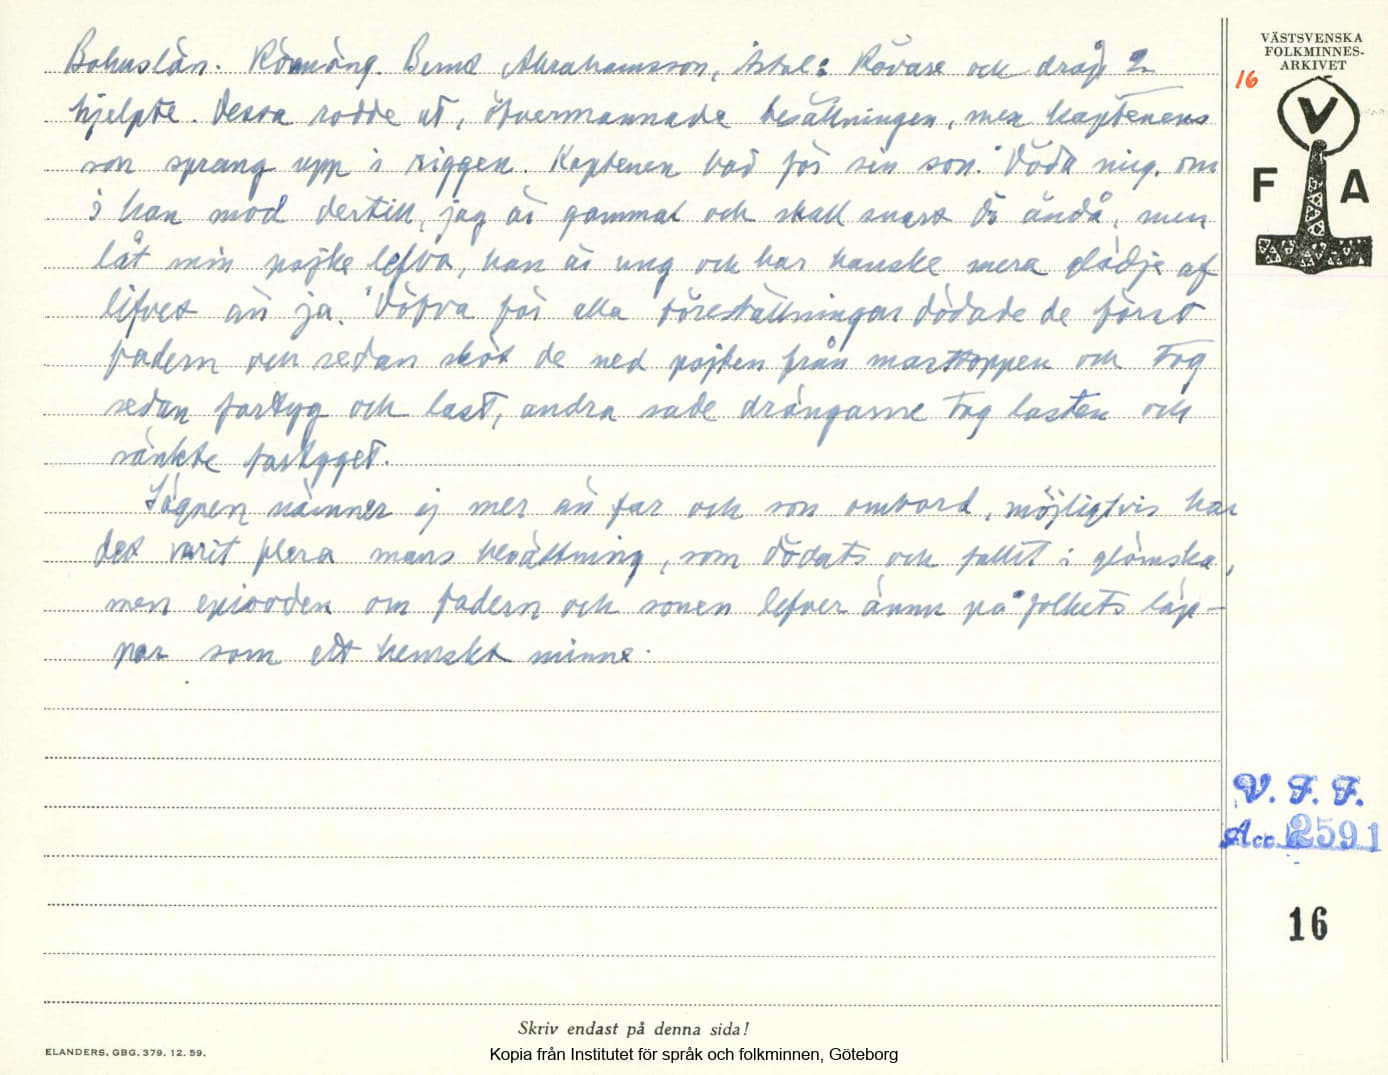 Bohuslän. Rönnäng. Bernt Abrahamsson, Åstol: Rövare och dråp 2
hjelpte. Dessa rodde ut, öfvermannade besättningen, men kaptenens
son sprang upp i riggen. Kaptenen bad för sin son. "Döda mig, om
i han mod dertill, jag är gammal och skall snart dö ändå, men
låt min pojke lefva, han är ung och har kanske mera glädje af
lifvet än ja." Döfva för alla föreställningar dödade de först
fadern och sedan sköt de ned pojken från masttoppen och tog
sedan fartyg och last, andra sade drängarne tog lasten och
sänkte fartyget.
Sägnen nämner ej mer än far och son ombord, möjligtvis har
det varit flera mans besättning, som dödats och fallit i glömska,
men episoden om fadern och sonen lefver ännu på folkets läp-
par som ett hemskt minne.
VÄSTSVENSKA
FOLKMINNES-
ARKIVET
16
V
F A
V. F. F.
Acc. 2591
16
Skriv endast på denna sida!
ELANDERS, GBG. 379. 12. 59.
Kopia från Institutet för språk och folkminnen, Göteborg